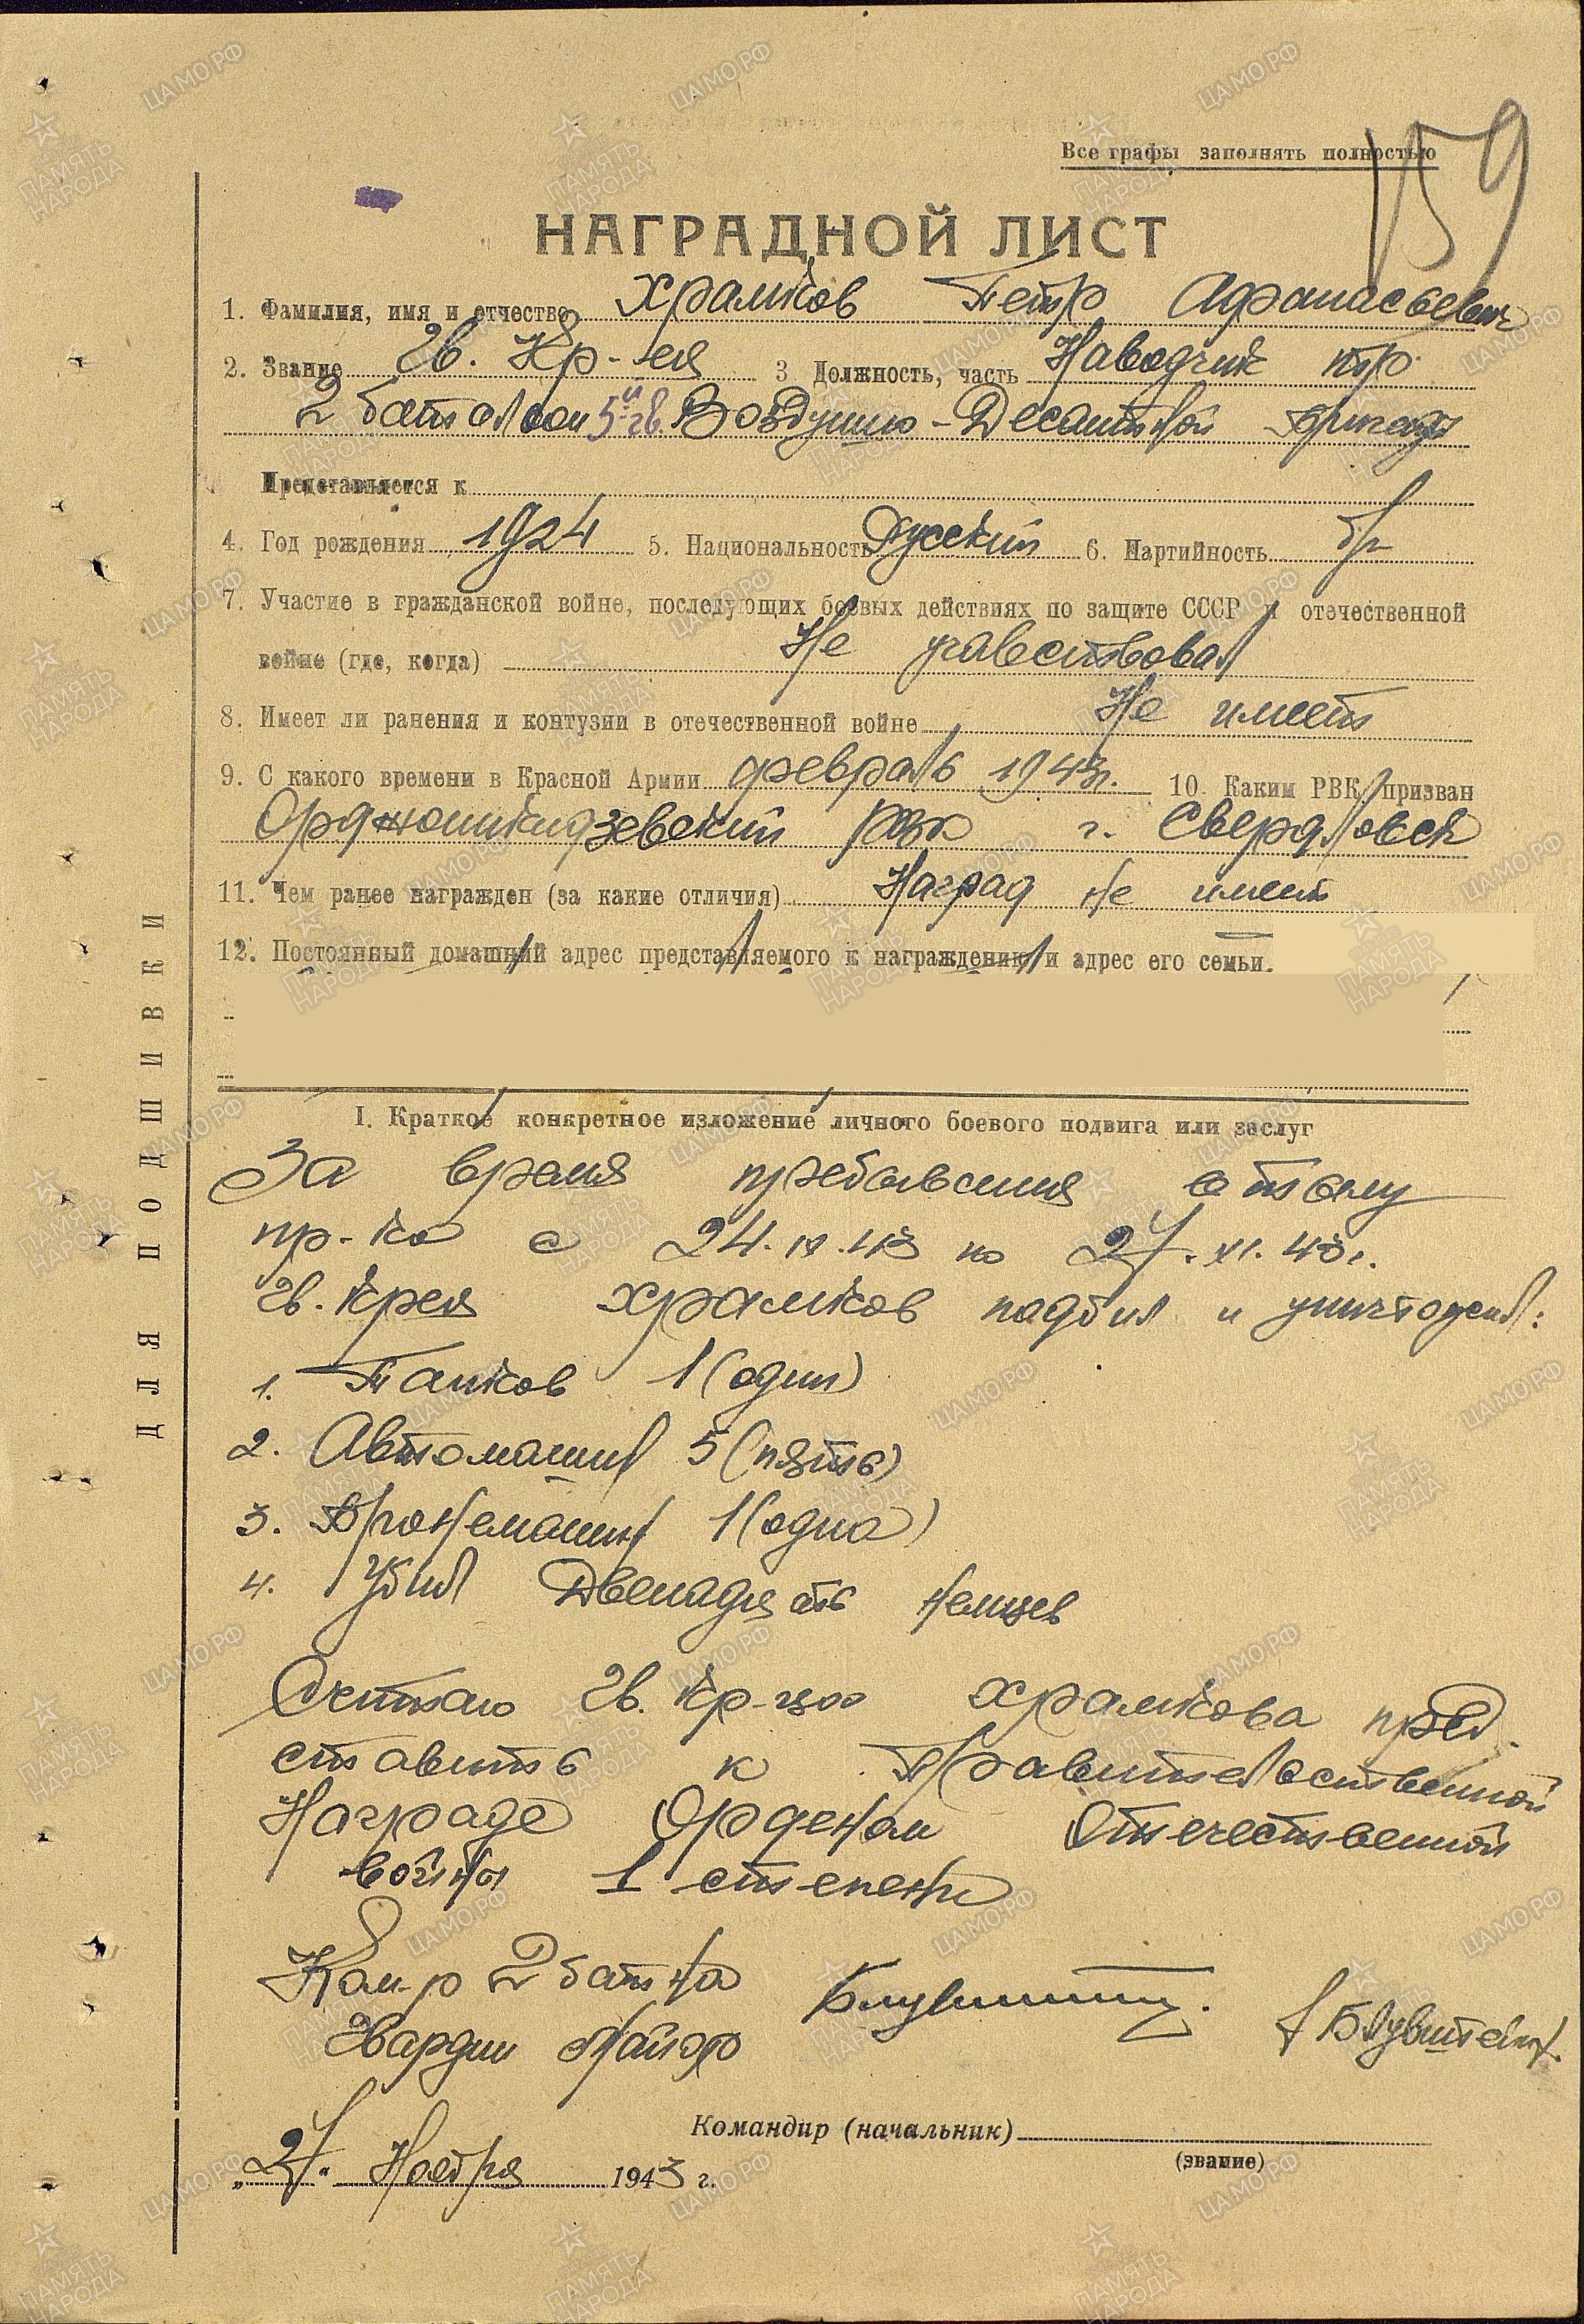 159
Все графы заполнять полностью
НАГРАДНОЙ ЛИСТ
1. Фамилия, имя и отчество Храмков Петр Афанасьевич
2. Звание Гв. Кр-ея 3 Должность, часть Наводчик птр
2 батальон 5-й гв. Воздушно-Десантной бригады
Представляется к
4. Год рождения 1924 5. Национальность Русский 6. Партийность б/п
7. Участие в гражданской войне, последующих боевых действиях по защите СССР и отечественной
войне (где, когда) Не учавствовал
8. Имеет ли ранения и контузии в отечественной войне Не имеет
9. С какого времени в Красной Армии февраль 1943г. 10. Каким РВК призван
Орджоникидзевский РВК г. Свердловск
11. Чем ранее награжден (за какие отличия) Наград не имеет
12. Постоянный домашний адрес представляемого к награждению и адрес его семьи.
I. Краткое конкретное изложение личного боевого подвига или заслуг
За время пребывания в тылу
пр-ка с 24.IX.43 по 27.XI.43г.
Гв. Крея Храмков подбил и уничтожил:
1. Танков 1 (один)
2. Автомашин 5 (пять)
3. Бронемашин 1 (одна)
4. Убил Двенадцать немцев
Считаю Гв. Кр-цо Храмкова пред.
ставить к Правительственной
Награде Орденом Отечественной
войны 1 степени
Ком-р 2 бат-на
Гвардии Майор Блувштейн
"27" Ноября 1943 г.
Командир (начальник)
(звание)
ДЛЯ ПОДШИВКИ
ПАМЯТЬ НАРОДА
ЦАМО.РФ